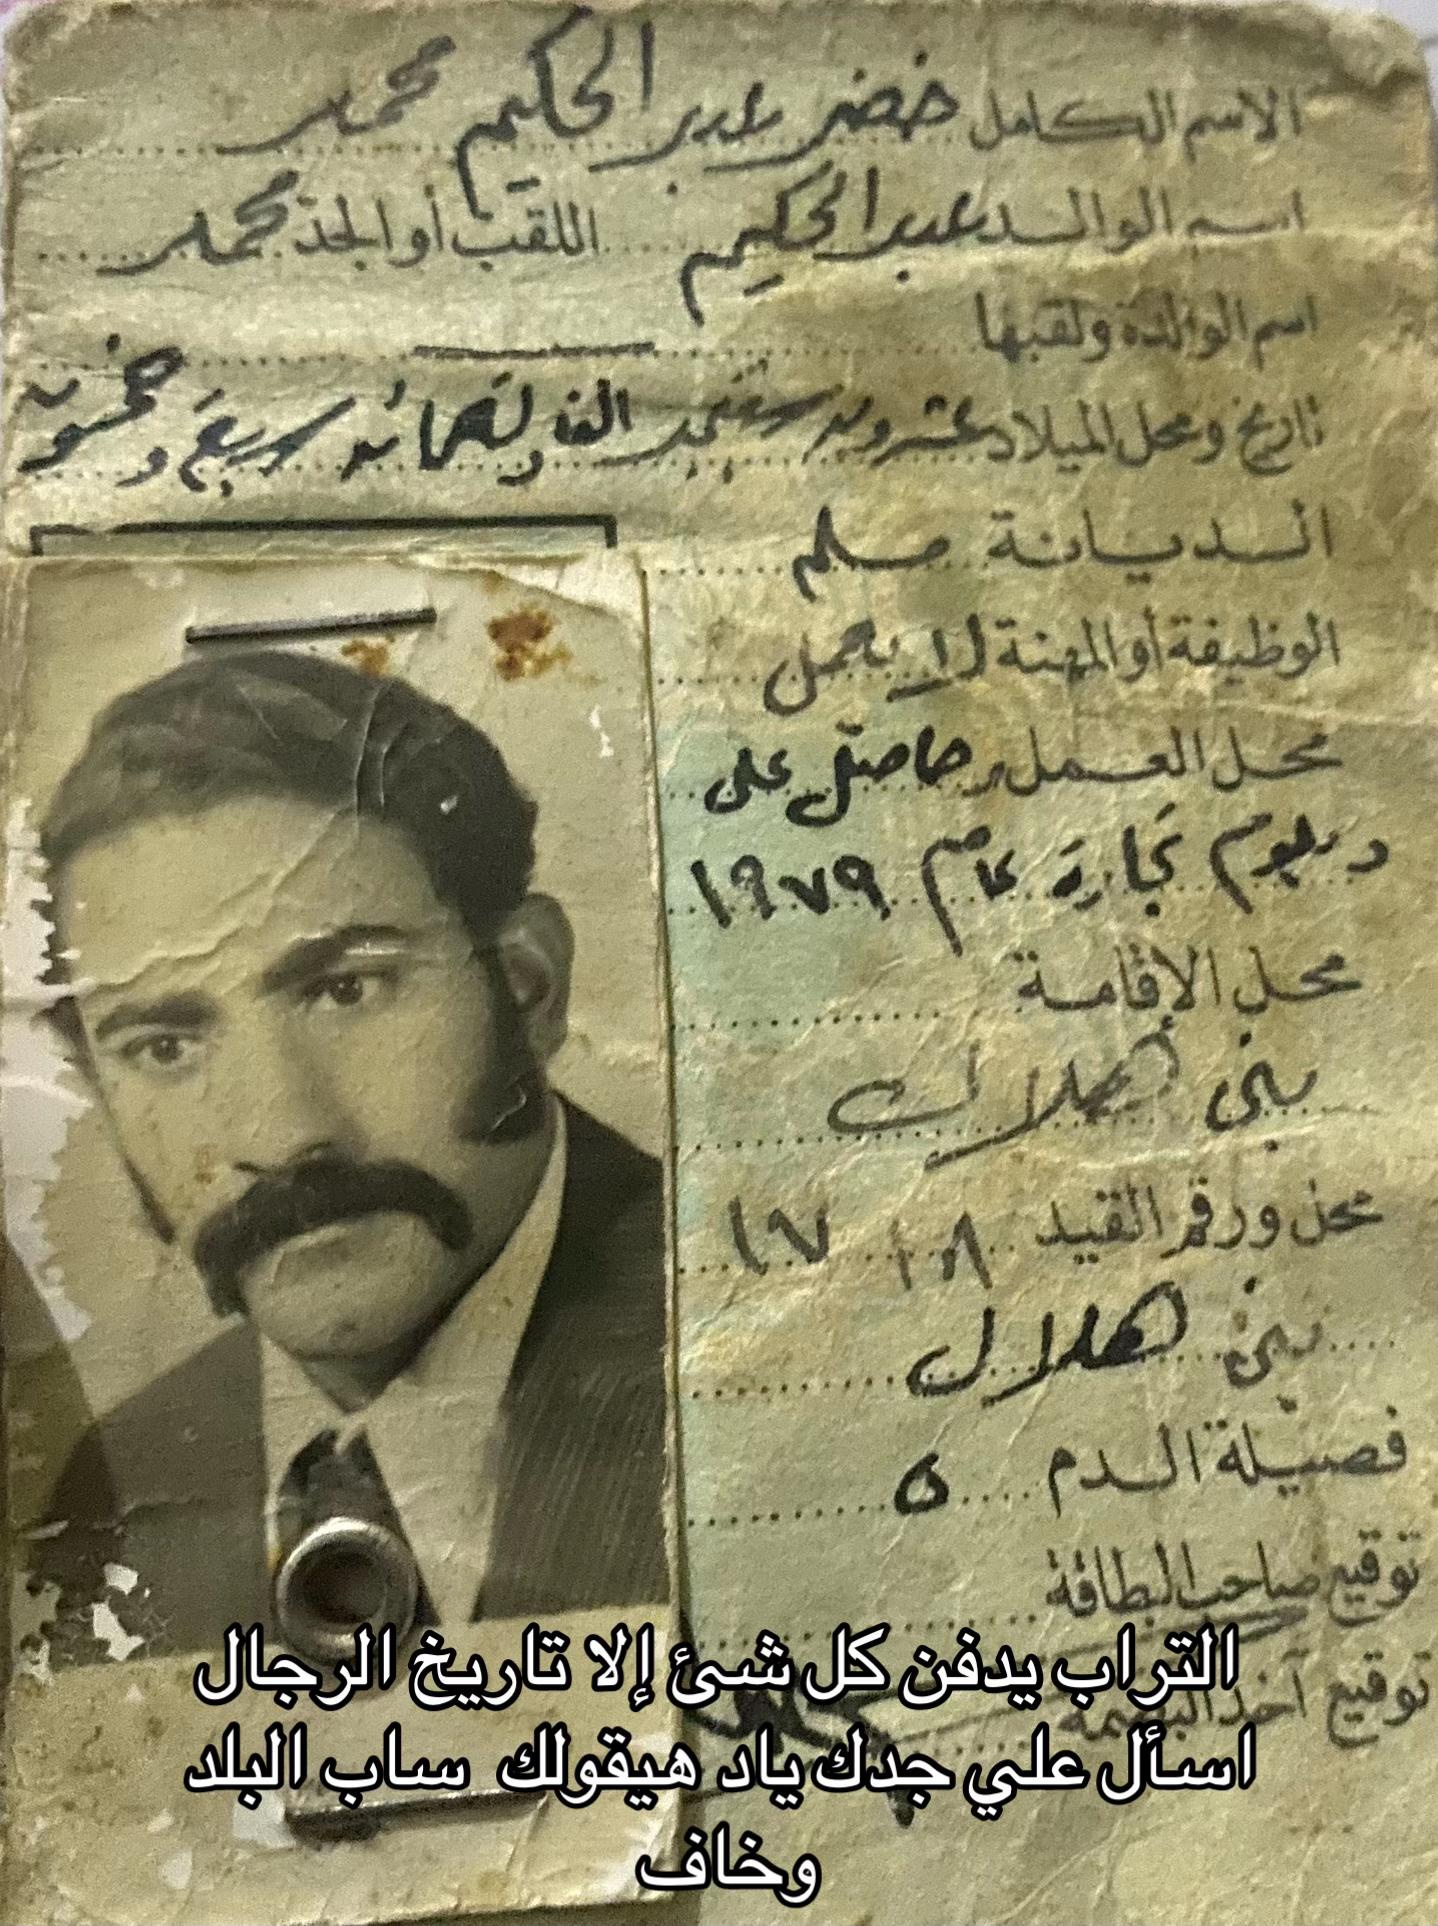 الاسم الكامل خضر عبد الحكيم محمد
اسم الوالد عبد الحكيم اللقب أو الجد محمد
اسم الوالدة ولقبها
تاريخ ومحل الميلاد عشرون سبتمبر الف وتسعمائه سبعة وخمسون
الديانة مسلم
الوظيفة أو المهنة لا يعمل
محل العمل حاصل على
دبلوم تجارة عام ١٩٧٩
محل الإقامة
بنى هلال
محل ورقم القيد ١٨ ١٧
بنى هلال
فصيلة الدم
توقيع صاحب البطاقة
توقيع آخذ البصمة
التراب يدفن كل شئ إلا تاريخ الرجال
اسأل علي جدك ياد هيقولك ساب البلد
وخاف